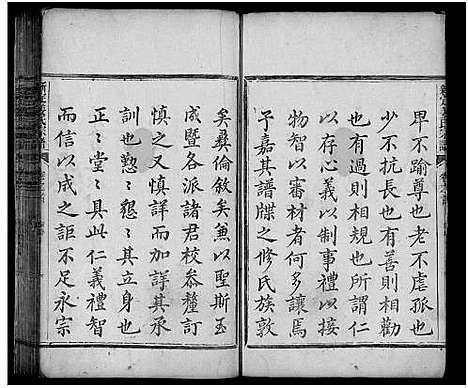 卑不踰尊也老不虐孤也
少不抗長也有善則相勸
也有過則相規也所謂仁
以存心義以制事禮以接
物智以審材者何多讓焉
予嘉其譜牒之修氏族敦
矣彝倫敘矣兼以聖斯玉
成暨各派諸君校參釐訂
慎之又慎詳而其詳其承
訓也懃〻懇〻其立身也
正〻堂〻具此仁義禮智
而信以成之詎不足永宗